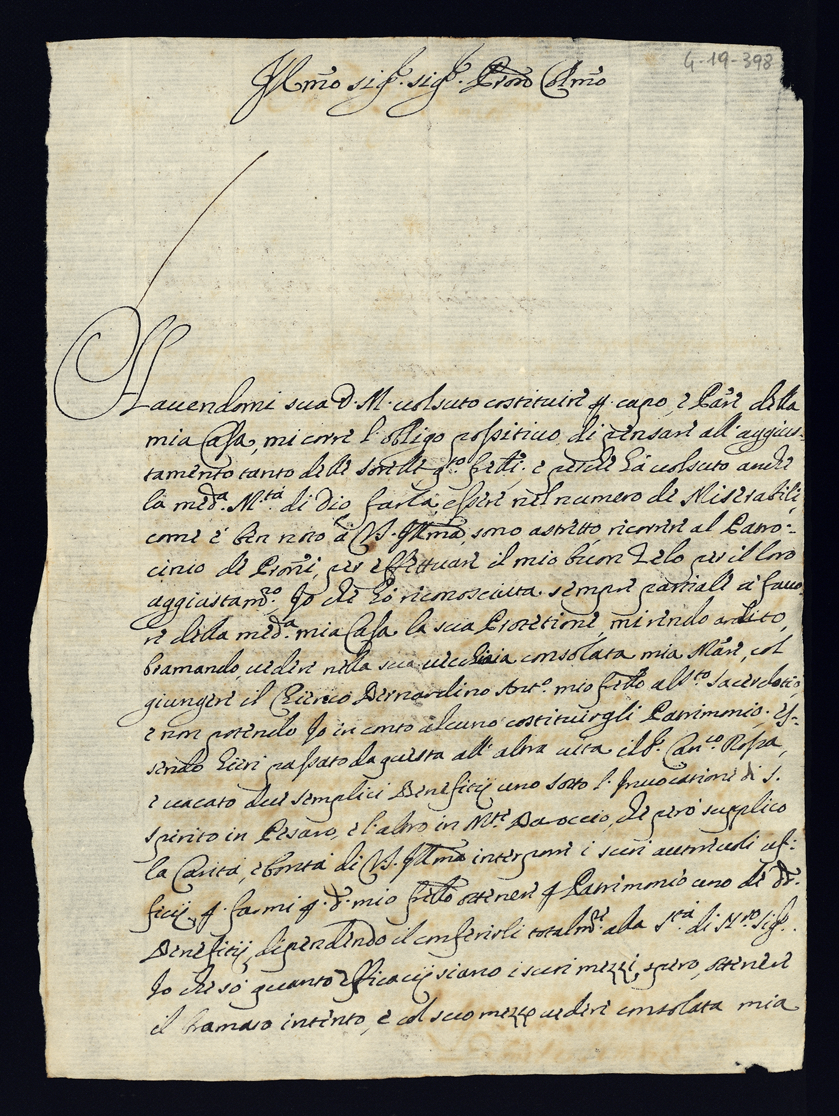 4-19-398
Ill.mo sig.r sig.r Pron Colmo
Hauendomi sua D. M. uolsuto costituire p. capo, e Pare della
mia Casa, mi corre l'obligo possitiuo, di pensare all'aggius-
tamento tanto delle sorelle q.to frelli: e perche hà uolsuto anche
la med.a M.tà di Dio farla essere nel numero de Miserabili,
come è ben noto à V.S. Illma, sono astretto ricorrere al Patro-
cinio de Proni, per effettuare il mio buon zelo per il loro
aggiustam.to, Io che hò riconosciuta sempre partiale à fauo-
re della med.a mia Casa la sua Protetione, mi rendo ardito,
bramando uedere nella sua uecchiaia consolata mia Mare, col
giungere il Chierico Bernardino Ant.o mio frello al S.to Sacerdotio,
e non potendo Io in conto alcuno costituirgli Patrimonio. Es-
sendo hieri passato da questa all'altra uita il S.r Can.co Rossa,
e uacato due semplici Beneficij uno sotto l'Inuocatione di S.
Spirito in Pesaro, e l'altro in M.te Baroccio, che però supplico
la Carità, e bontà di V.S. Illma interporre i suoi autreuoli uf-
ficij, p. farmi p. d. mio frello ottenere p Patrimonio uno di d.i
Beneficij, dipendendo il conferirli totalm.te alla S.tà di N.ro Sig.re.
Io che sò quanto efficacij siano i suoi mezzi, spero, ottenere
il bramato intento, e col suo mezzo uedere consolata mia